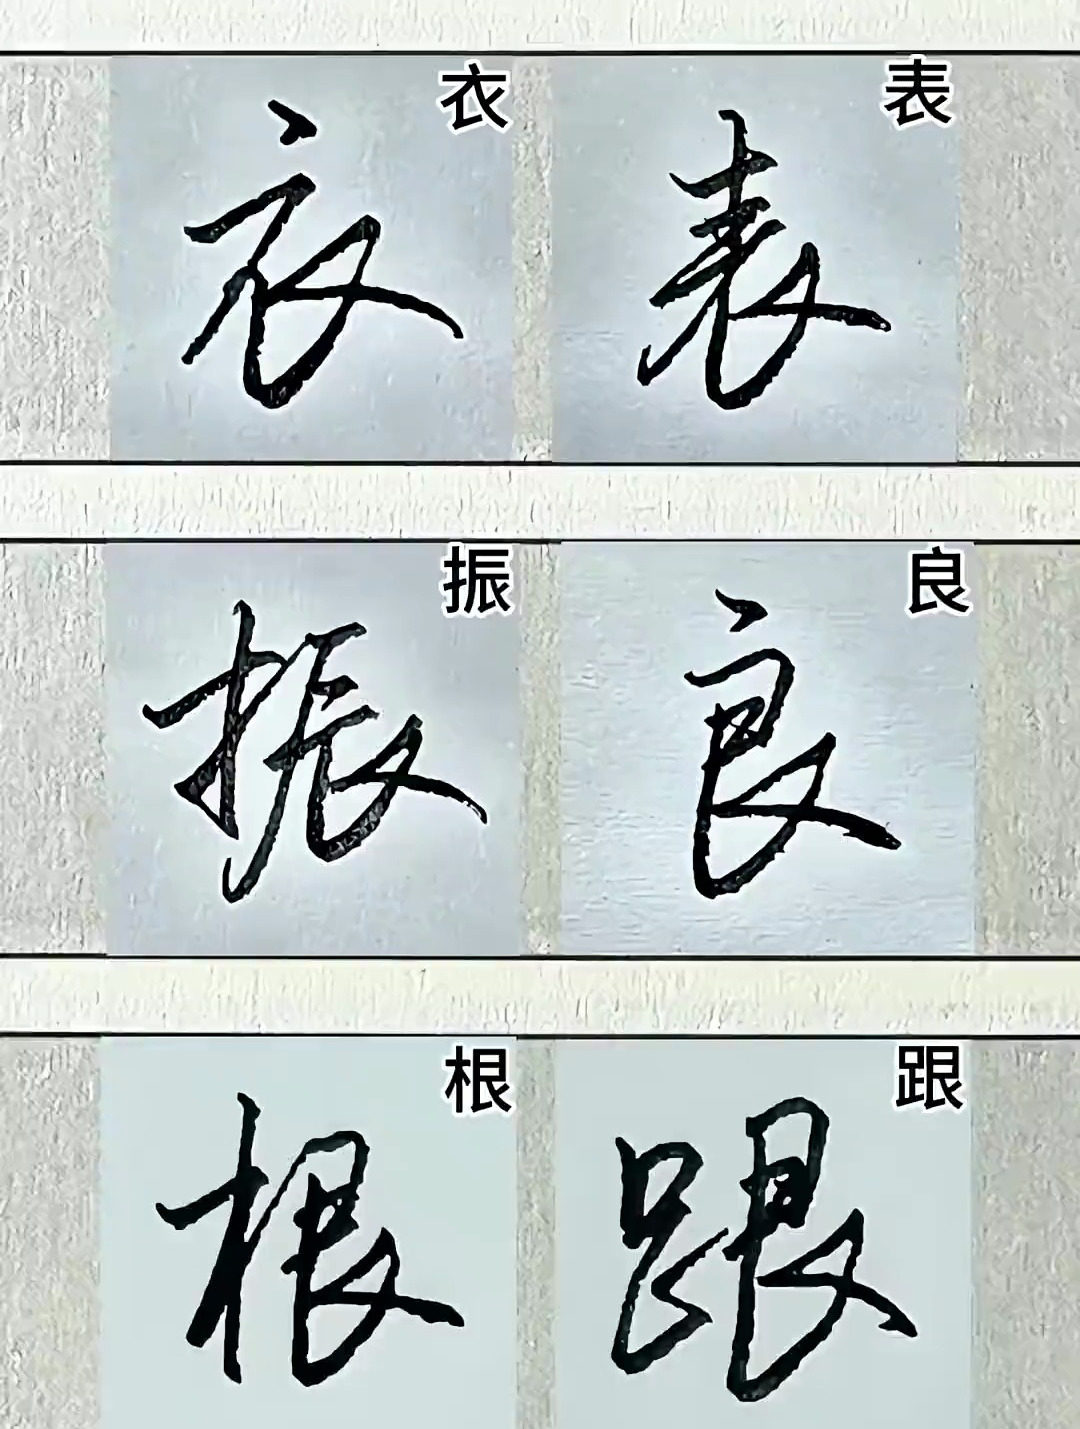 衣 衣 表 表
振 振 良 良
根 根 跟 跟